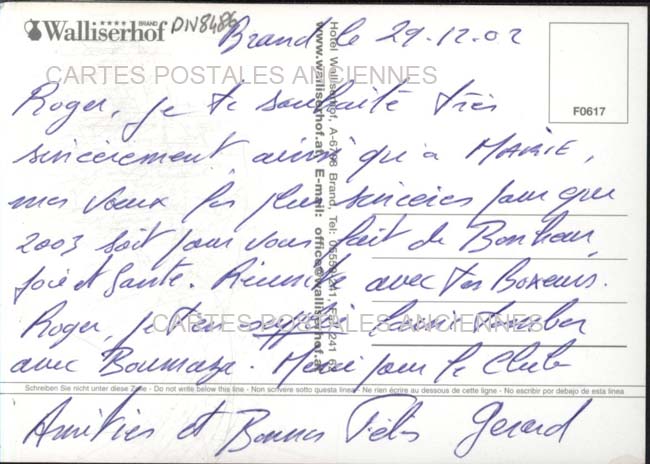 BRAND
Walliserhof
DN8486
Brand le 29.12.02
CARTES POSTALES ANCIENNES
Roger, je te souhaite très
sincèrement ainsi qu'à MARIE,
mes vœux les plus sincères pour que
2003 soit pour vous fait de Bonheur,
joie et Santé. Réussite avec tes Boxeurs.
Roger, je t'en supplie, laisse tomber
avec Boumaza. Merci pour le Club
Amitiés et Bonnes Fêtes Gerard
Hotel Walliserhof, A-6708 Brand, Tel: 05559/241,
www.walliserhof.at E-mail: office@walliserhof.at
F0617
CARTES POSTALES ANCIENNES
Schreiben Sie nicht unter diese Zeile - Do not write below this line - Non scrivere sotto questa linea - Ne rien écrire au dessous de cette ligne - No escribir por debajo de esta linea